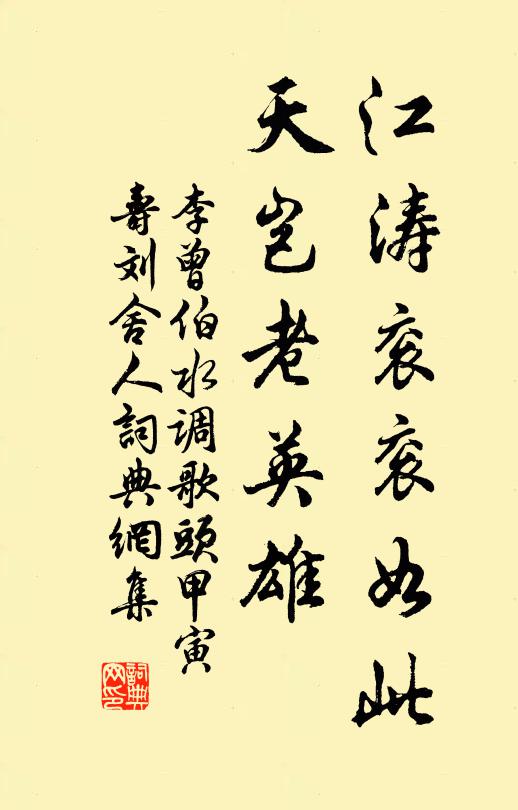 江涛衮衮如此
天岂老英雄
李曾伯水调歌頭甲寅
壽刘舍人詞典網集
詞典網印